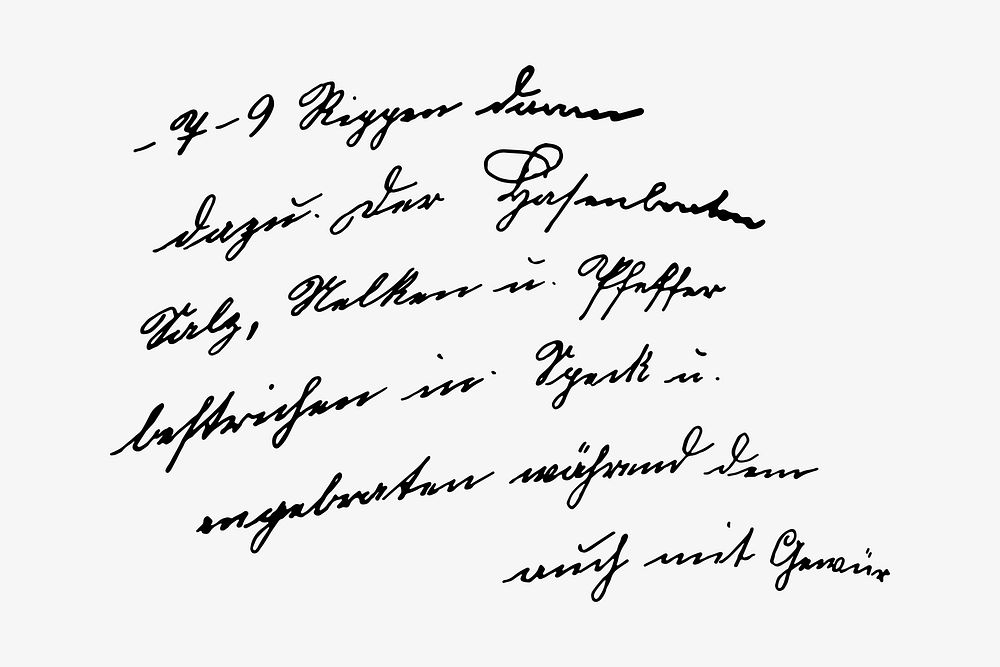 – 7 – 9 Rippen daran
dazu. Der Hasenbraten
Salz, Nelken u. Pfeffer
bestrichen in. Speck u.
angebraten während dem
auch mit Gewür